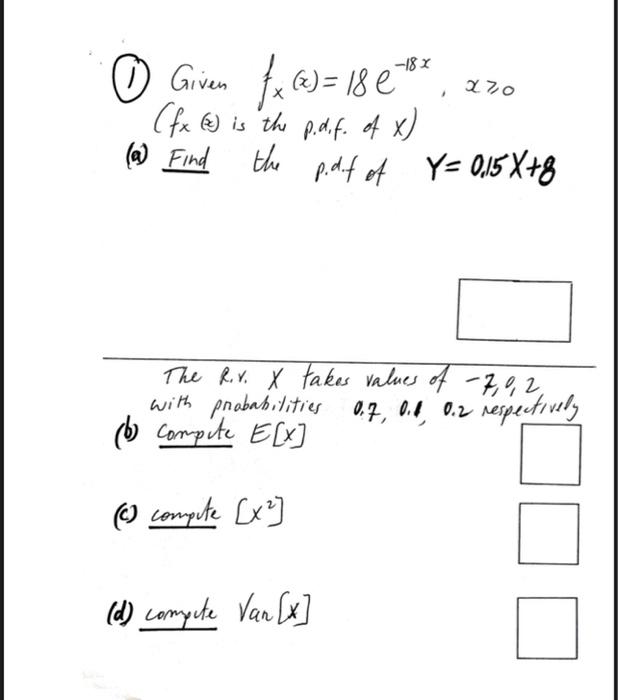 ① Given fₓ(x) = 18 e^{-18x}, x ≥ 0
(fₓ(x) is the p.d.f. of X)
(a) Find the p.d.f of Y = 0.15 X + 8
The R.V. X takes values of -7, 0, 2
with probabilities 0.7, 0.1, 0.2 respectively
(b) compute E[X]
(c) compute [X²]
(d) compute Var[X]